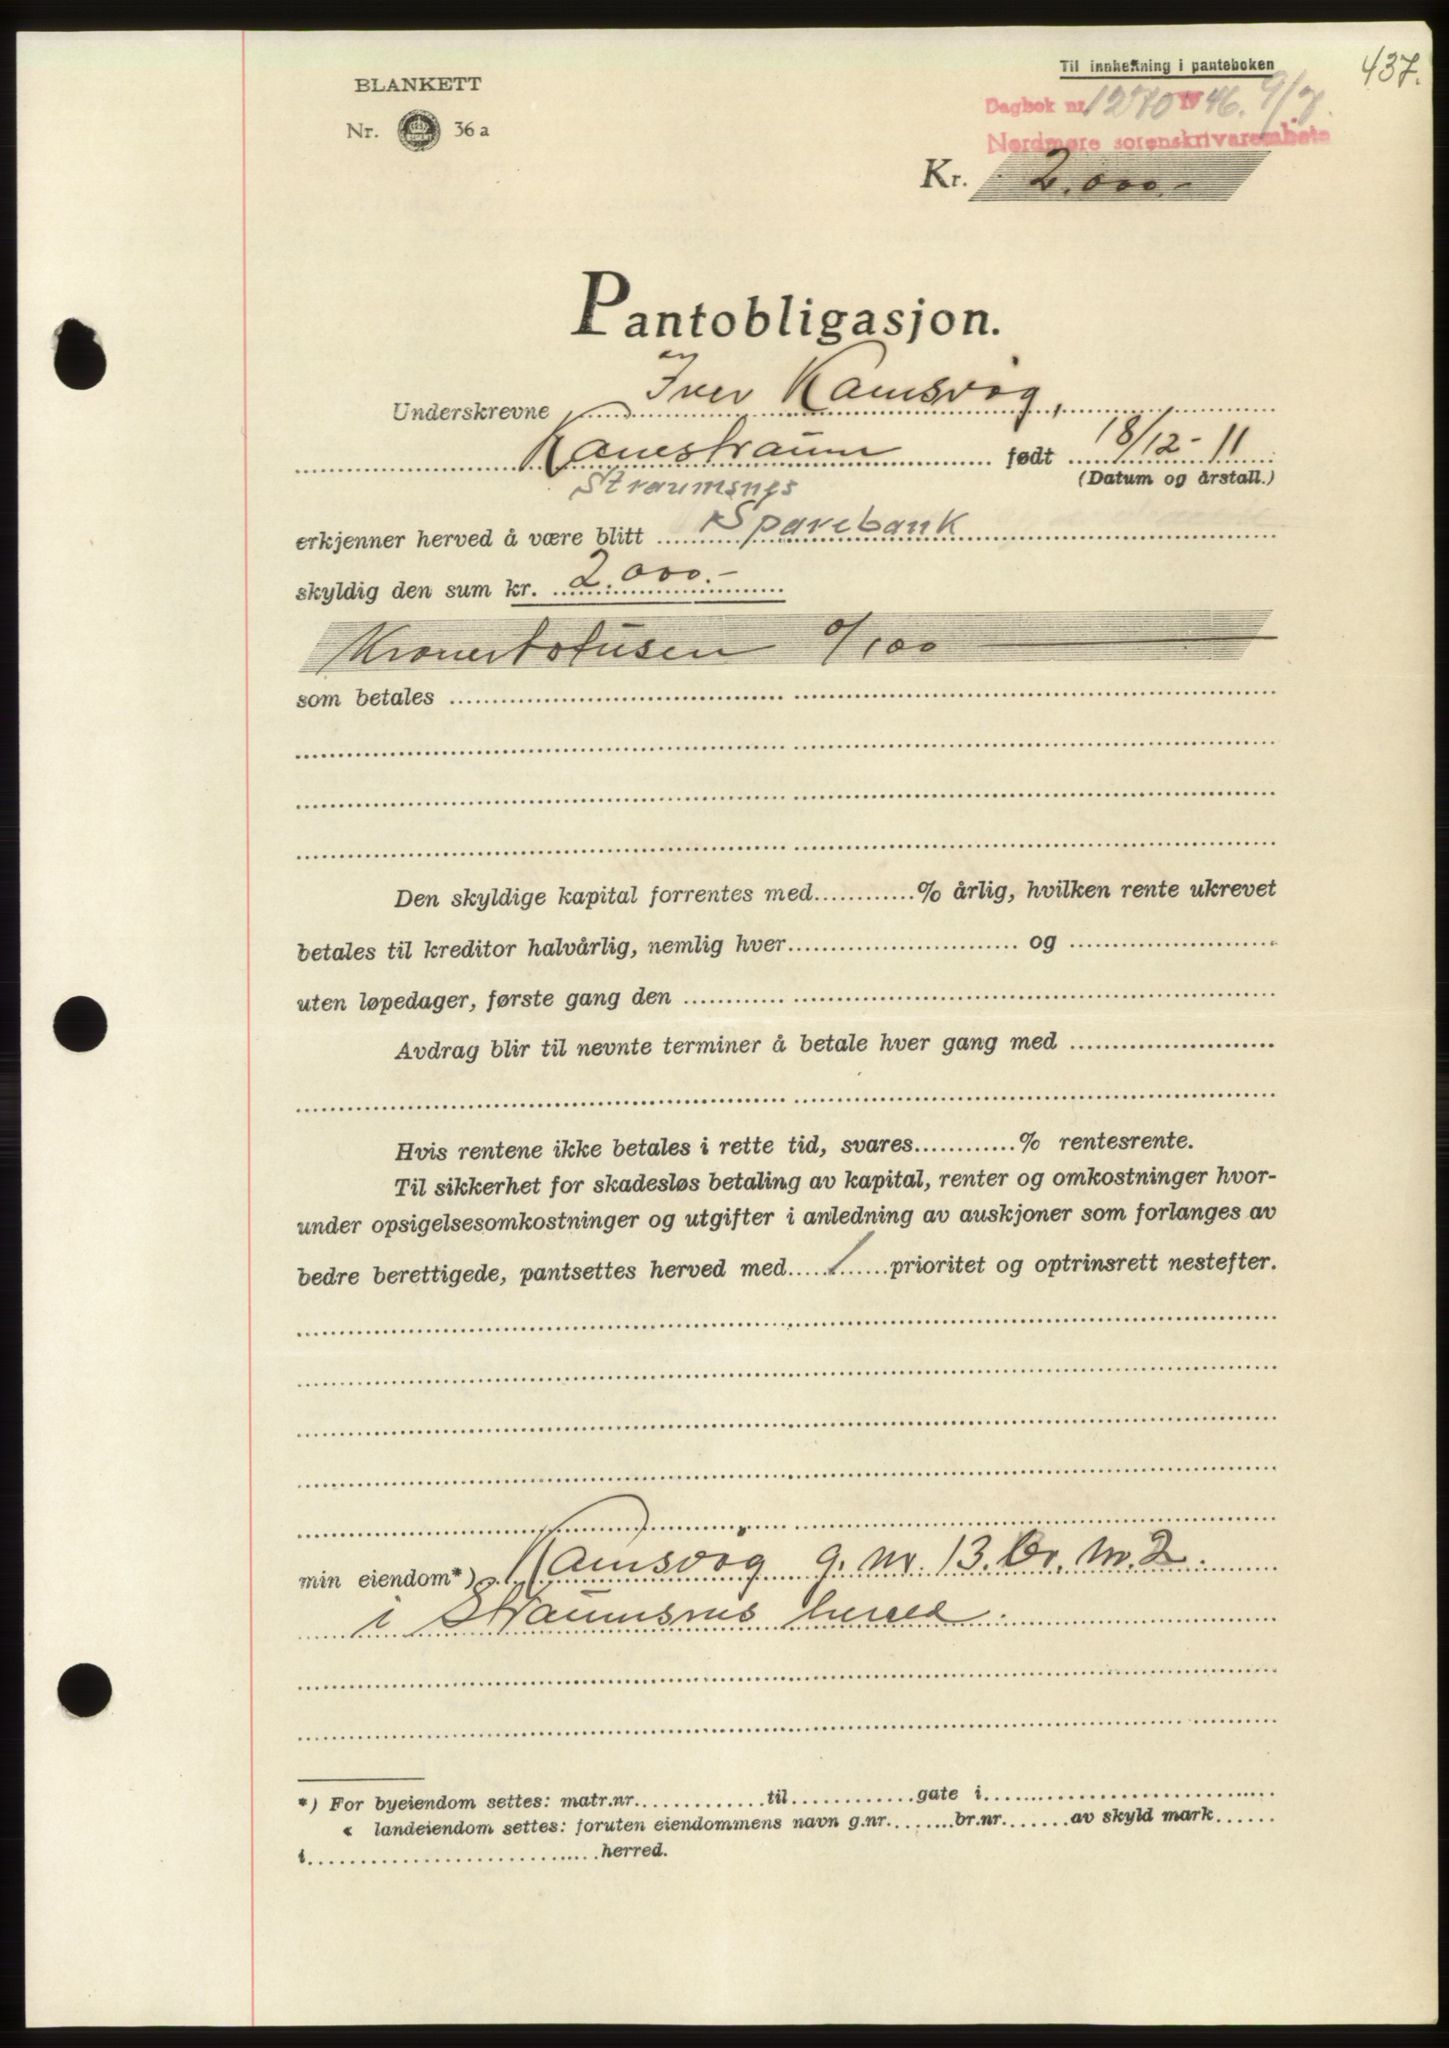 437.
Til innheftning i panteboken
BLANKETT
Nr. 36 a
Dagbok nr. 1270 1946. 9/7.
Nordmøre sorenskrivarembete
Kr. 2.000.-
Pantobligasjon.
Underskrevne Iver Kamsvåg,
Kanestraum født 18/12-11
(Datum og årstall.)
Straumsnes
erkjenner herved å være blitt Sparebank
skyldig den sum kr. 2.000.-
Kronertotusen 0/100
som betales
Den skyldige kapital forrentes med % årlig, hvilken rente ukrevet
betales til kreditor halvårlig, nemlig hver og
uten løpedager, første gang den
Avdrag blir til nevnte terminer å betale hver gang med
Hvis rentene ikke betales i rette tid, svares % rentesrente.
Til sikkerhet for skadesløs betaling av kapital, renter og omkostninger hvor-
under opsigelsesomkostninger og utgifter i anledning av auskjoner som forlanges av
bedre berettigede, pantsettes herved med 1 prioritet og optrinsrett nestefter.
min eiendom*) Kamsvåg g. nr. 13. br. nr. 2.
i Straumsnes herred.
*) For byeiendom settes: matr.nr. til gate i
« landeiendom settes: foruten eiendommens navn g.nr. br.nr. av skyld mark
i herred.